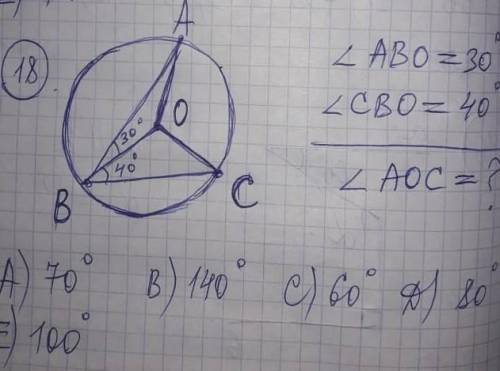 A
18
O
30°
40°
B
C
∠ ABO = 30°
∠ CBO = 40°
∠ AOC = ?
A) 70° B) 140° C) 60° D) 80°
E) 100°